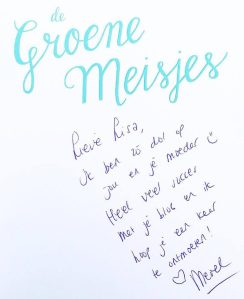 de
Groene
Meisjes
Lieve Lisa,
ik ben zó dol op
jou en je moeder
Heel veel succes
met je blog en ik
hoop je een keer
te ontmoeten!
♡ Merel